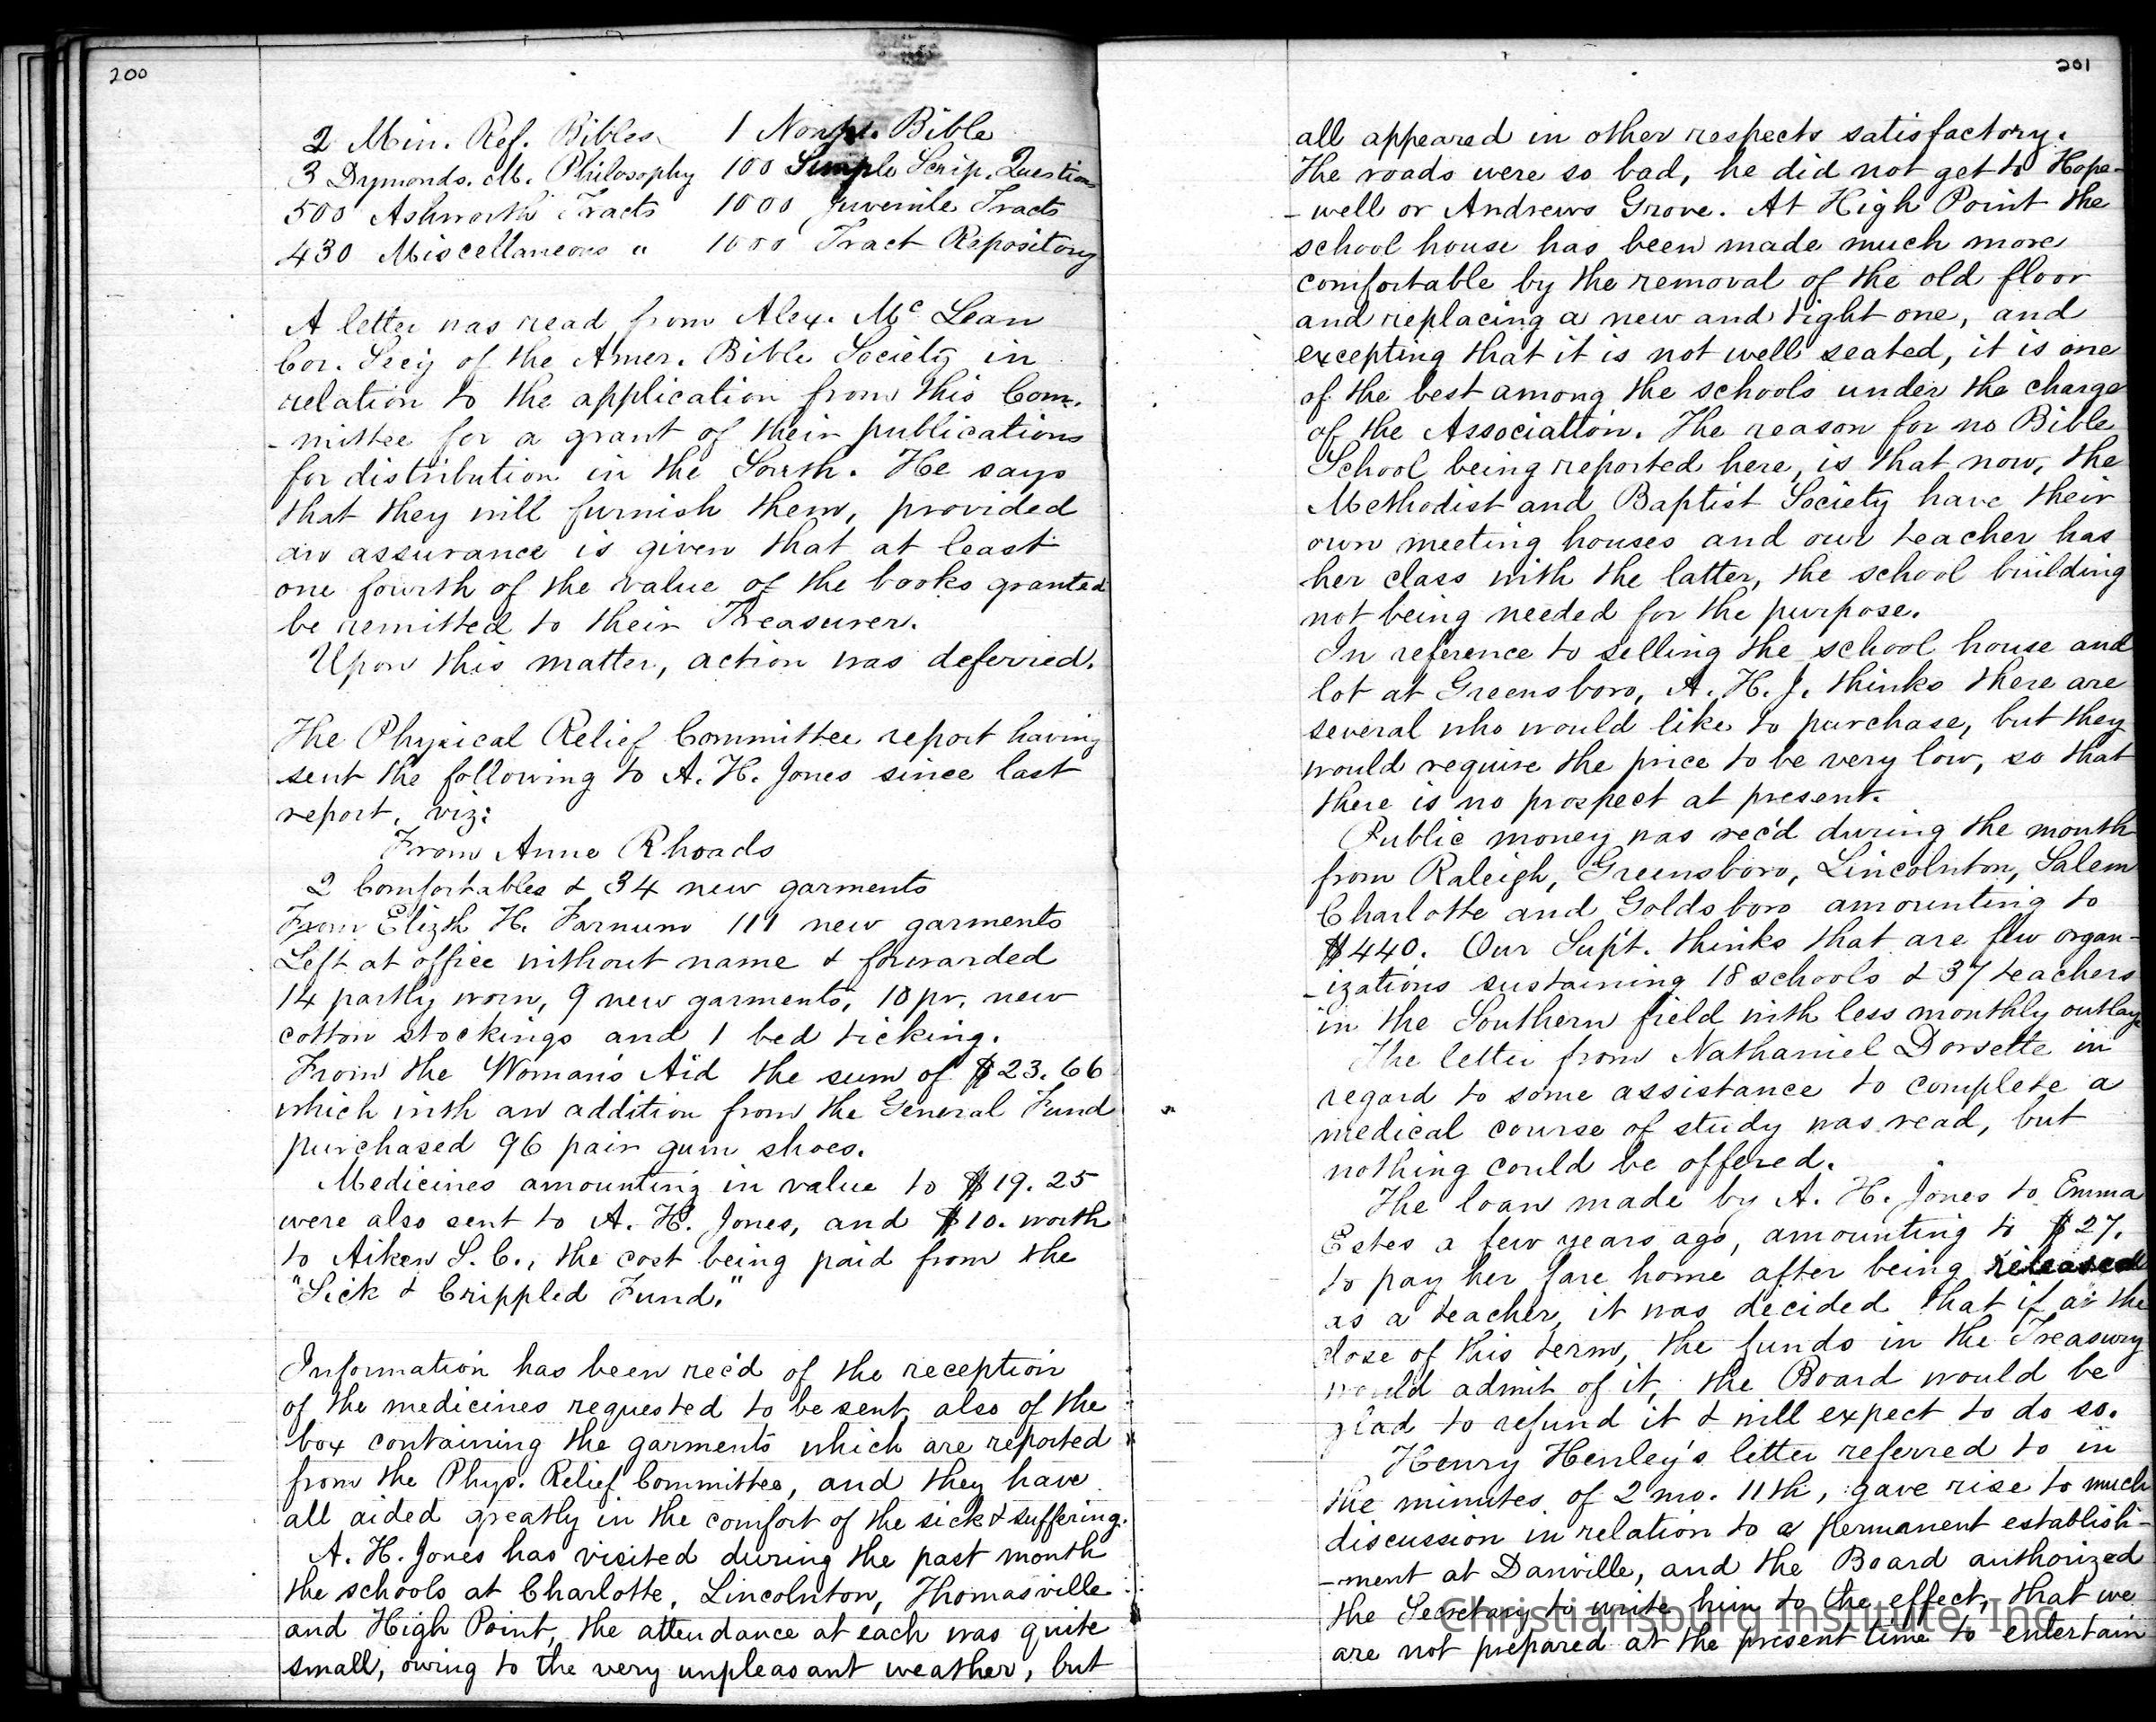 200
2 Min. Ref. Bibles 1 Nonp. Bible
3 Dymonds. M. Philosophy 100 Simple Scrip. Questions
500 Ashworth Tracts 1000 Juvenile Tracts
430 Miscellaneous " 1000 Tract Repository
A letter was read from Alex. Mc Lean
Cor. Secy of the Amer. Bible Society in
relation to the application from this Com.
-mittee for a grant of their publications
for distribution in the South. He says
that they will furnish them, provided
an assurance is given that at least
one fourth of the value of the books granted
be remitted to their Treasurer.
Upon this matter, action was deferred.
The Physical Relief Committee report having
sent the following to A. H. Jones since last
report, viz:
From Anne Rhoads
2 Comfortables & 34 new garments
From Elizth H. Farnum 111 new garments
Left at office without name & forwarded
14 partly worn, 9 new garments, 10 pr. new
cotton stockings and 1 bed ticking.
From the Woman's Aid the sum of $23.66
which with an addition from the General Fund
purchased 96 pair gum shoes.
Medicines amounting in value to $19.25
were also sent to A. H. Jones, and $10. worth
to Aiken S. C., the cost being paid from the
"Sick & Crippled Fund."
Information has been rec'd of the reception
of the medicines requested to be sent, also of the
box containing the garments which are reported
from the Phys. Relief Committee, and they have
all aided greatly in the comfort of the sick & suffering.
A. H. Jones has visited during the past month
the schools at Charlotte, Lincolnton, Thomasville
and High Point, the attendance at each was quite
small, owing to the very unpleasant weather, but
201
all appeared in other respects satisfactory.
The roads were so bad, he did not get to Hope-
-well or Andrews Grove. At High Point the
school house has been made much more
comfortable by the removal of the old floor
and replacing a new and tight one, and
excepting that it is not well seated, it is one
of the best among the schools under the charge
of the Association. The reason for no Bible
School being reported here, is that now, the
Methodist and Baptist Society have their
own meeting houses and our teacher has
her class with the latter, the school building
not being needed for the purpose.
In reference to selling the school house and
lot at Greensboro, A. H. J. thinks there are
several who would like to purchase, but they
would require the price to be very low, so that
there is no prospect at present.
Public money was rec'd during the month
from Raleigh, Greensboro, Lincolnton, Salem
Charlotte and Goldsboro amounting to
$440. Our Sup't. thinks that are few organ-
-izations sustaining 18 schools & 37 teachers
in the Southern field with less monthly outlay
The letter from Nathaniel Dorsette in
regard to some assistance to complete a
medical course of study was read, but
nothing could be offered.
The loan made by A. H. Jones to Emma
Estes a few years ago, amounting to $27.
to pay her fare home after being released
as a teacher, it was decided that if at the
close of this term, the funds in the Treasury
would admit of it, the Board would be
glad to refund it & will expect to do so.
Henry Henley's letter referred to in
the minutes of 2 mo. 11th, gave rise to much
discussion in relation to a permanent establish-
-ment at Danville, and the Board authorized
the Secretary to write him to the effect, that we
are not prepared at the present time to entertain
Christiansburg Institute, Inc.